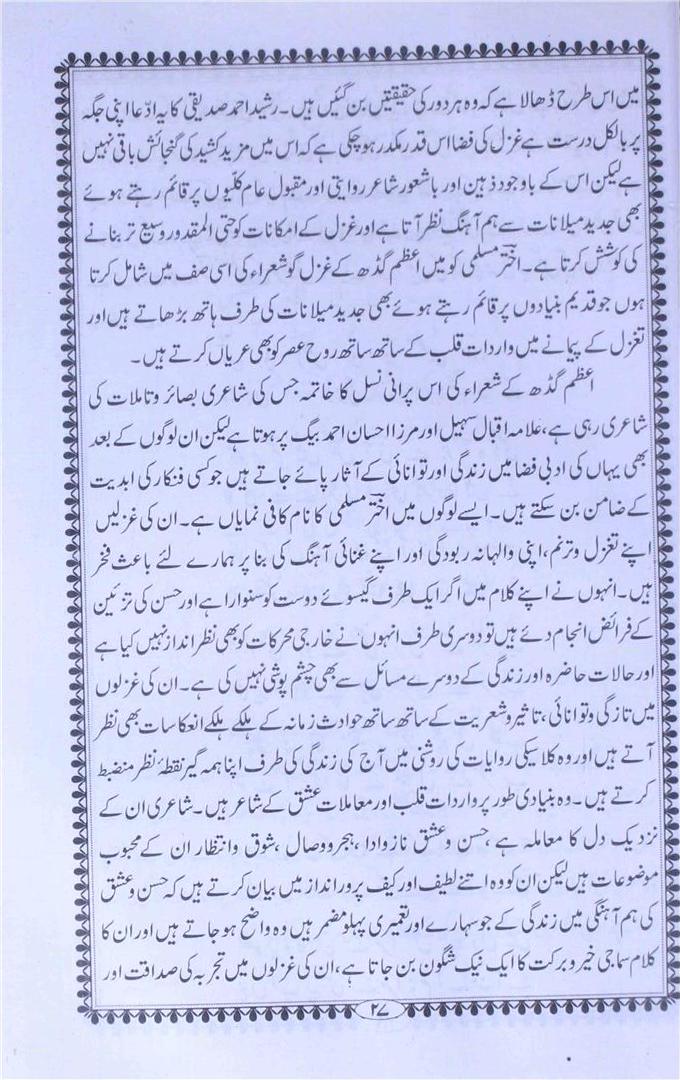 میں اس طرح ڈھالا ہے کہ وہ ہر دور کی حقیقتیں بن گئیں ہیں۔ رشید احمد صدیقی کا یہ ادّعا اپنی جگہ
پر بالکل درست ہے غزل کی فضا اس قدر مکدر ہو چکی ہے کہ اس میں مزید کشید کی گنجائش باقی نہیں
ہے لیکن اس کے باوجود ذہین اور باشعور شاعر روایتی اور مقبول عام کلّیوں پر قائم رہتے ہوئے
بھی جدید میلانات سے ہم آہنگ نظر آتا ہے اور غزل کے امکانات کو حتی المقدور وسیع تر بنانے
کی کوشش کرتا ہے۔ اختر مسلمی کو میں اعظم گڈھ کے غزل گو شعراء کی اسی صف میں شامل کرتا
ہوں جو قدیم بنیادوں پر قائم رہتے ہوئے بھی جدید میلانات کی طرف ہاتھ بڑھاتے ہیں اور
تغزل کے پیمانے میں واردات قلب کے ساتھ ساتھ روح عصر کو بھی عریاں کرتے ہیں۔
اعظم گڈھ کے شعراء کی اس پرانی نسل کا خاتمہ جس کی شاعری بصائر و تاملات کی
شاعری رہی ہے، علامہ اقبال سہیل اور مرزا احسان احمد بیگ پر ہوتا ہے لیکن ان لوگوں کے بعد
بھی یہاں کی ادبی فضا میں زندگی اور توانائی کے آثار پائے جاتے ہیں جو کسی فنکار کی ابدیت
کے ضامن بن سکتے ہیں۔ ایسے لوگوں میں اختر مسلمی کا نام کافی نمایاں ہے۔ ان کی غزلیں
اپنے تغزل و ترنم، اپنی والہانہ ربودگی اور اپنے غنائی آہنگ کی بنا پر ہمارے لئے باعث فخر
ہیں۔ انہوں نے اپنے کلام میں اگر ایک طرف گیسوئے دوست کو سنوارا ہے اور حسن کی تزئین
کے فرائض انجام دئے ہیں تو دوسری طرف انہوں نے خارجی محرکات کو بھی نظر انداز نہیں کیا ہے
اور حالات حاضرہ اور زندگی کے دوسرے مسائل سے بھی چشم پوشی نہیں کی ہے۔ ان کی غزلوں
میں تازگی و توانائی، تاثیر و شعریت کے ساتھ ساتھ حوادث زمانہ کے ہلکے ہلکے انعکاسات بھی نظر
آتے ہیں اور وہ کلاسیکی روایات کی روشنی میں آج کی زندگی کی طرف اپنا ہمہ گیر نقطۂ نظر منضبط
کرتے ہیں۔ وہ بنیادی طور پر واردات قلب اور معاملات عشق کے شاعر ہیں۔ شاعری ان کے
نزدیک دل کا معاملہ ہے، حسن و عشق ناز و ادا، ہجر و وصال، شوق و انتظار ان کے محبوب
موضوعات ہیں لیکن ان کو وہ اتنے لطیف اور کیف پرور انداز میں بیان کرتے ہیں کہ حسن و عشق
کی ہم آہنگی میں زندگی کے جو سہارے اور تعمیری پہلو مضمر ہیں وہ واضح ہو جاتے ہیں اور ان کا
کلام سماجی خیر و برکت کا ایک نیک شگون بن جاتا ہے، ان کی غزلوں میں تجربہ کی صداقت اور
۲۷